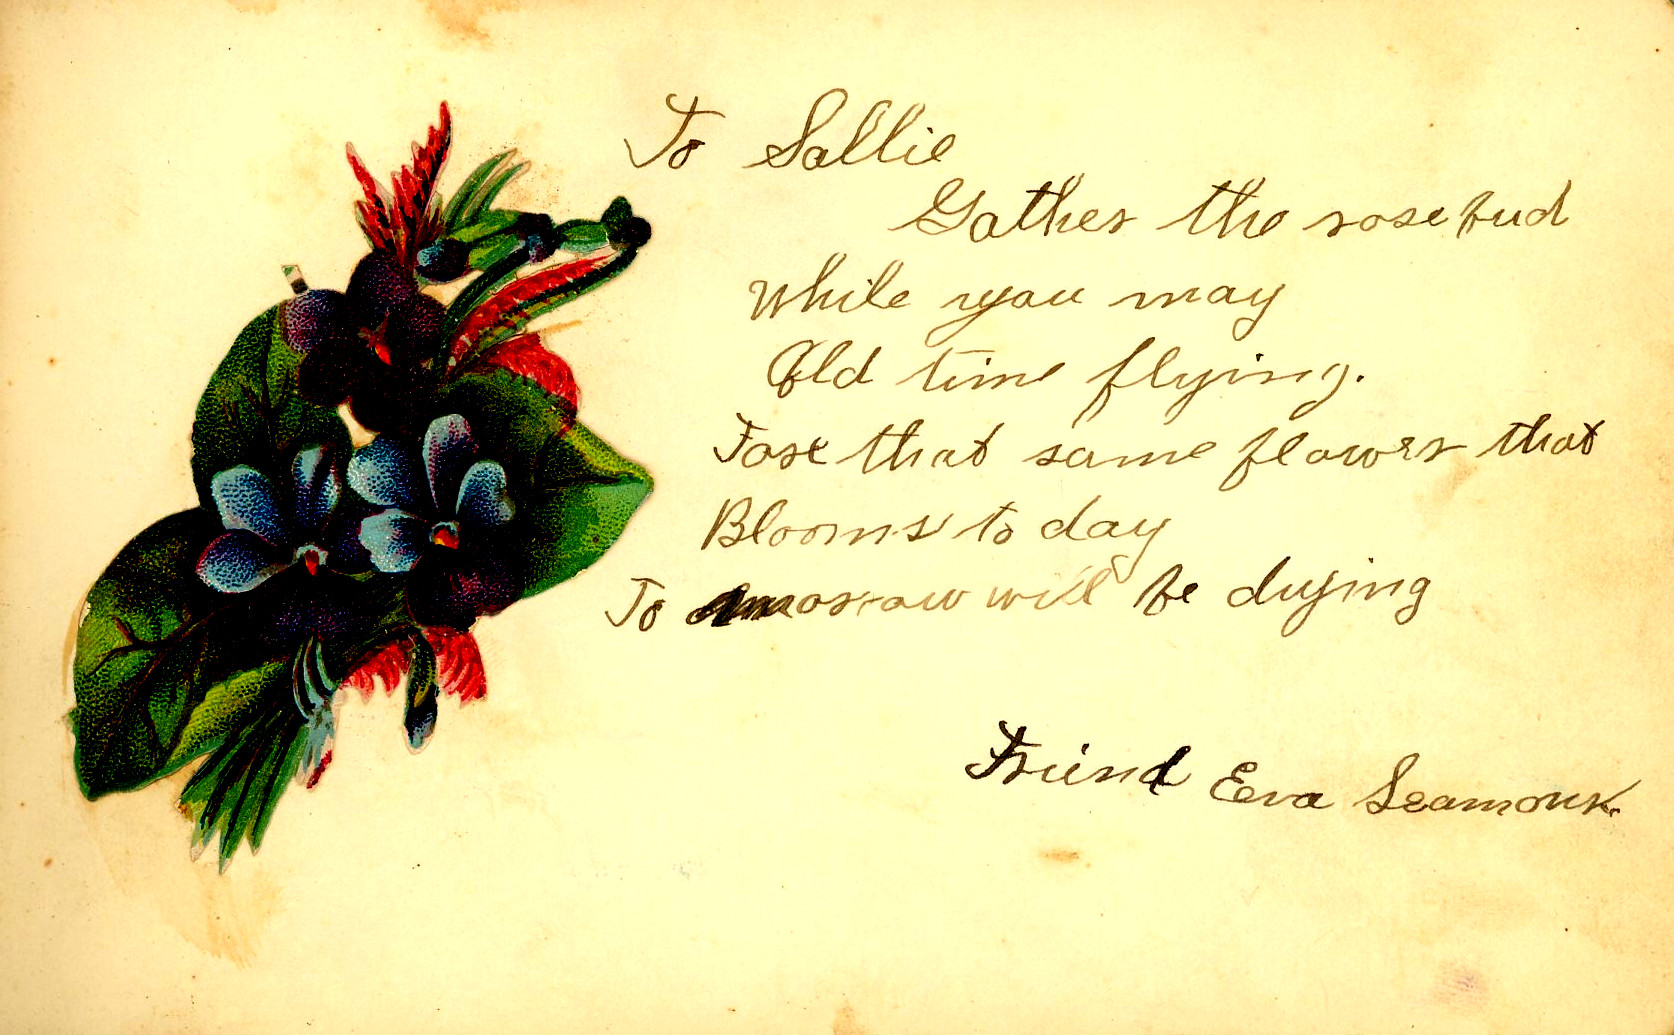 To Sallie
Gather the rose bud
While you may
Old time flying.
Fose that same flower that
Blooms to day
To morrow will be dying
Friend Eva